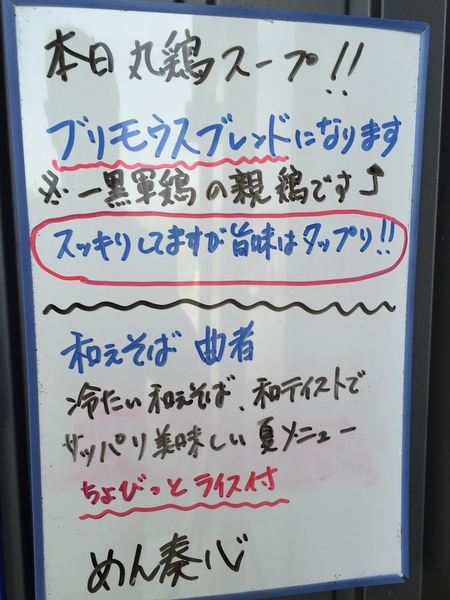 本日 丸鶏スープ!!
プリモウスブレンドになります
※一黒軍鶏の親鶏です⤴
スッキリしてますが旨味はタップリ!!
和えそば 曲者
冷たい和えそば、和テイストで
サッパリ美味しい夏メニュー
ちょびっとライス付
めん奏心